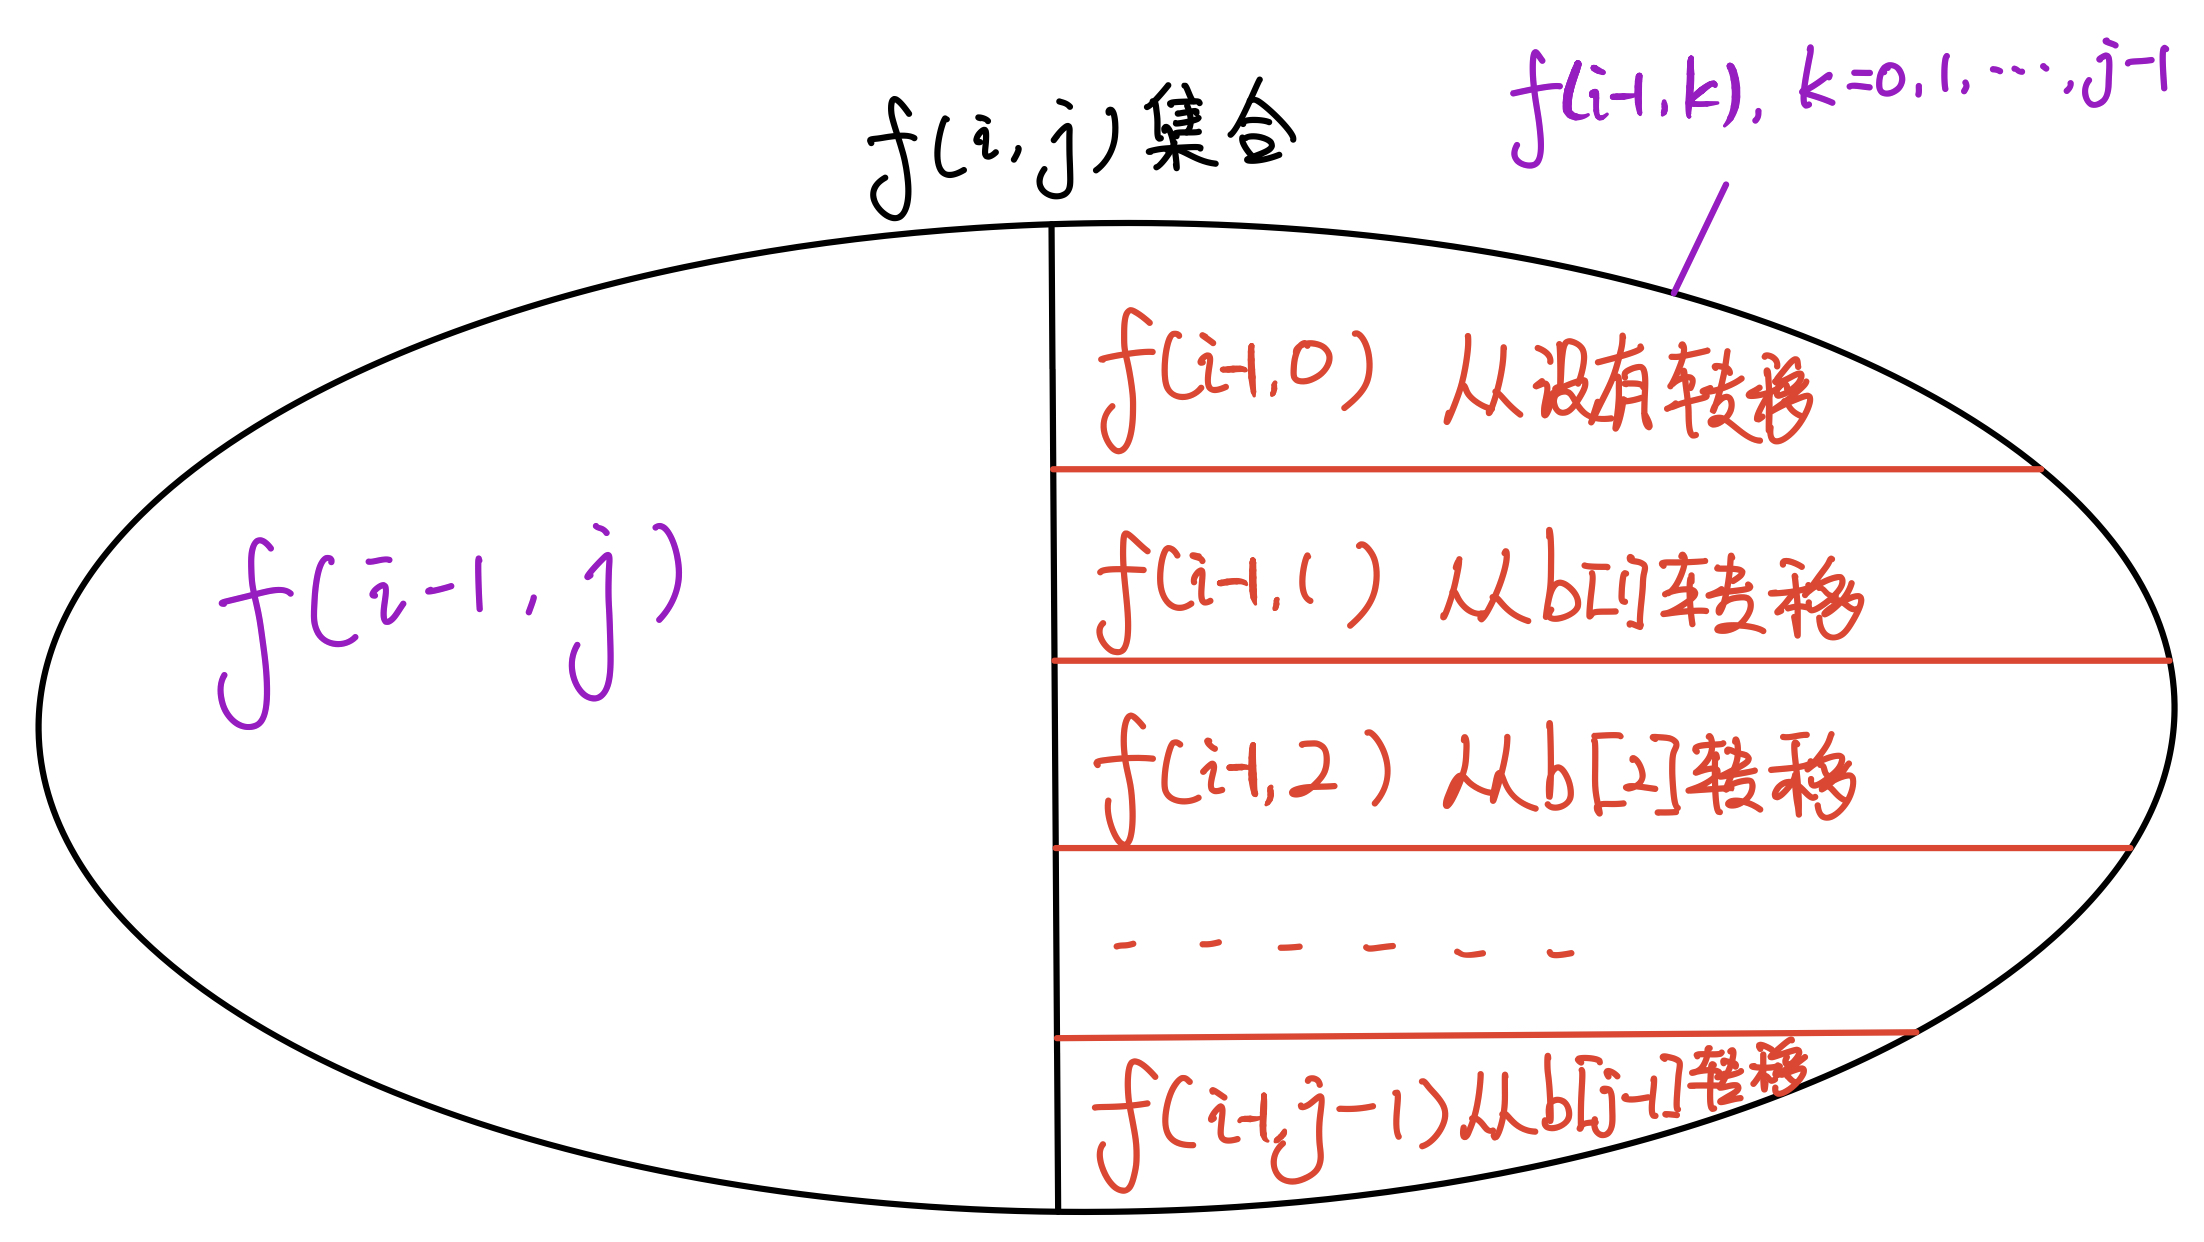 f(i-1,k), k=0,1,…,j-1
f(i,j)集合
f(i-1,j)
f(i-1,0) 从没有转移
f(i-1,1) 从b[1]转移
f(i-1,2) 从b[2]转移
------
f(i-1,j-1)从b[j-1]转移